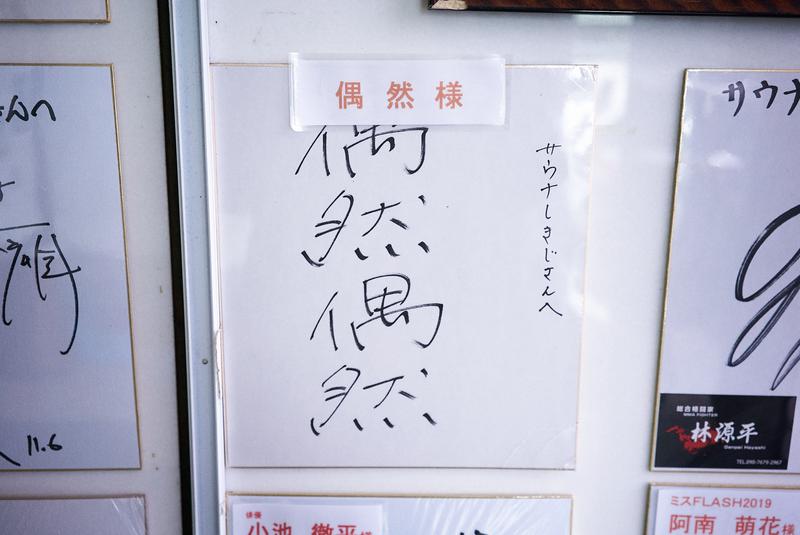 偶然様
サウナしきじさんへ
偶然
偶然
さんへ
11.6
サウナ
総合格闘家
MMA FIGHTER
林源平
Genpei Hayashi
TEL.090-7679-2967
俳優
小池 徹平様
ミスFLASH2019
阿南 萌花様